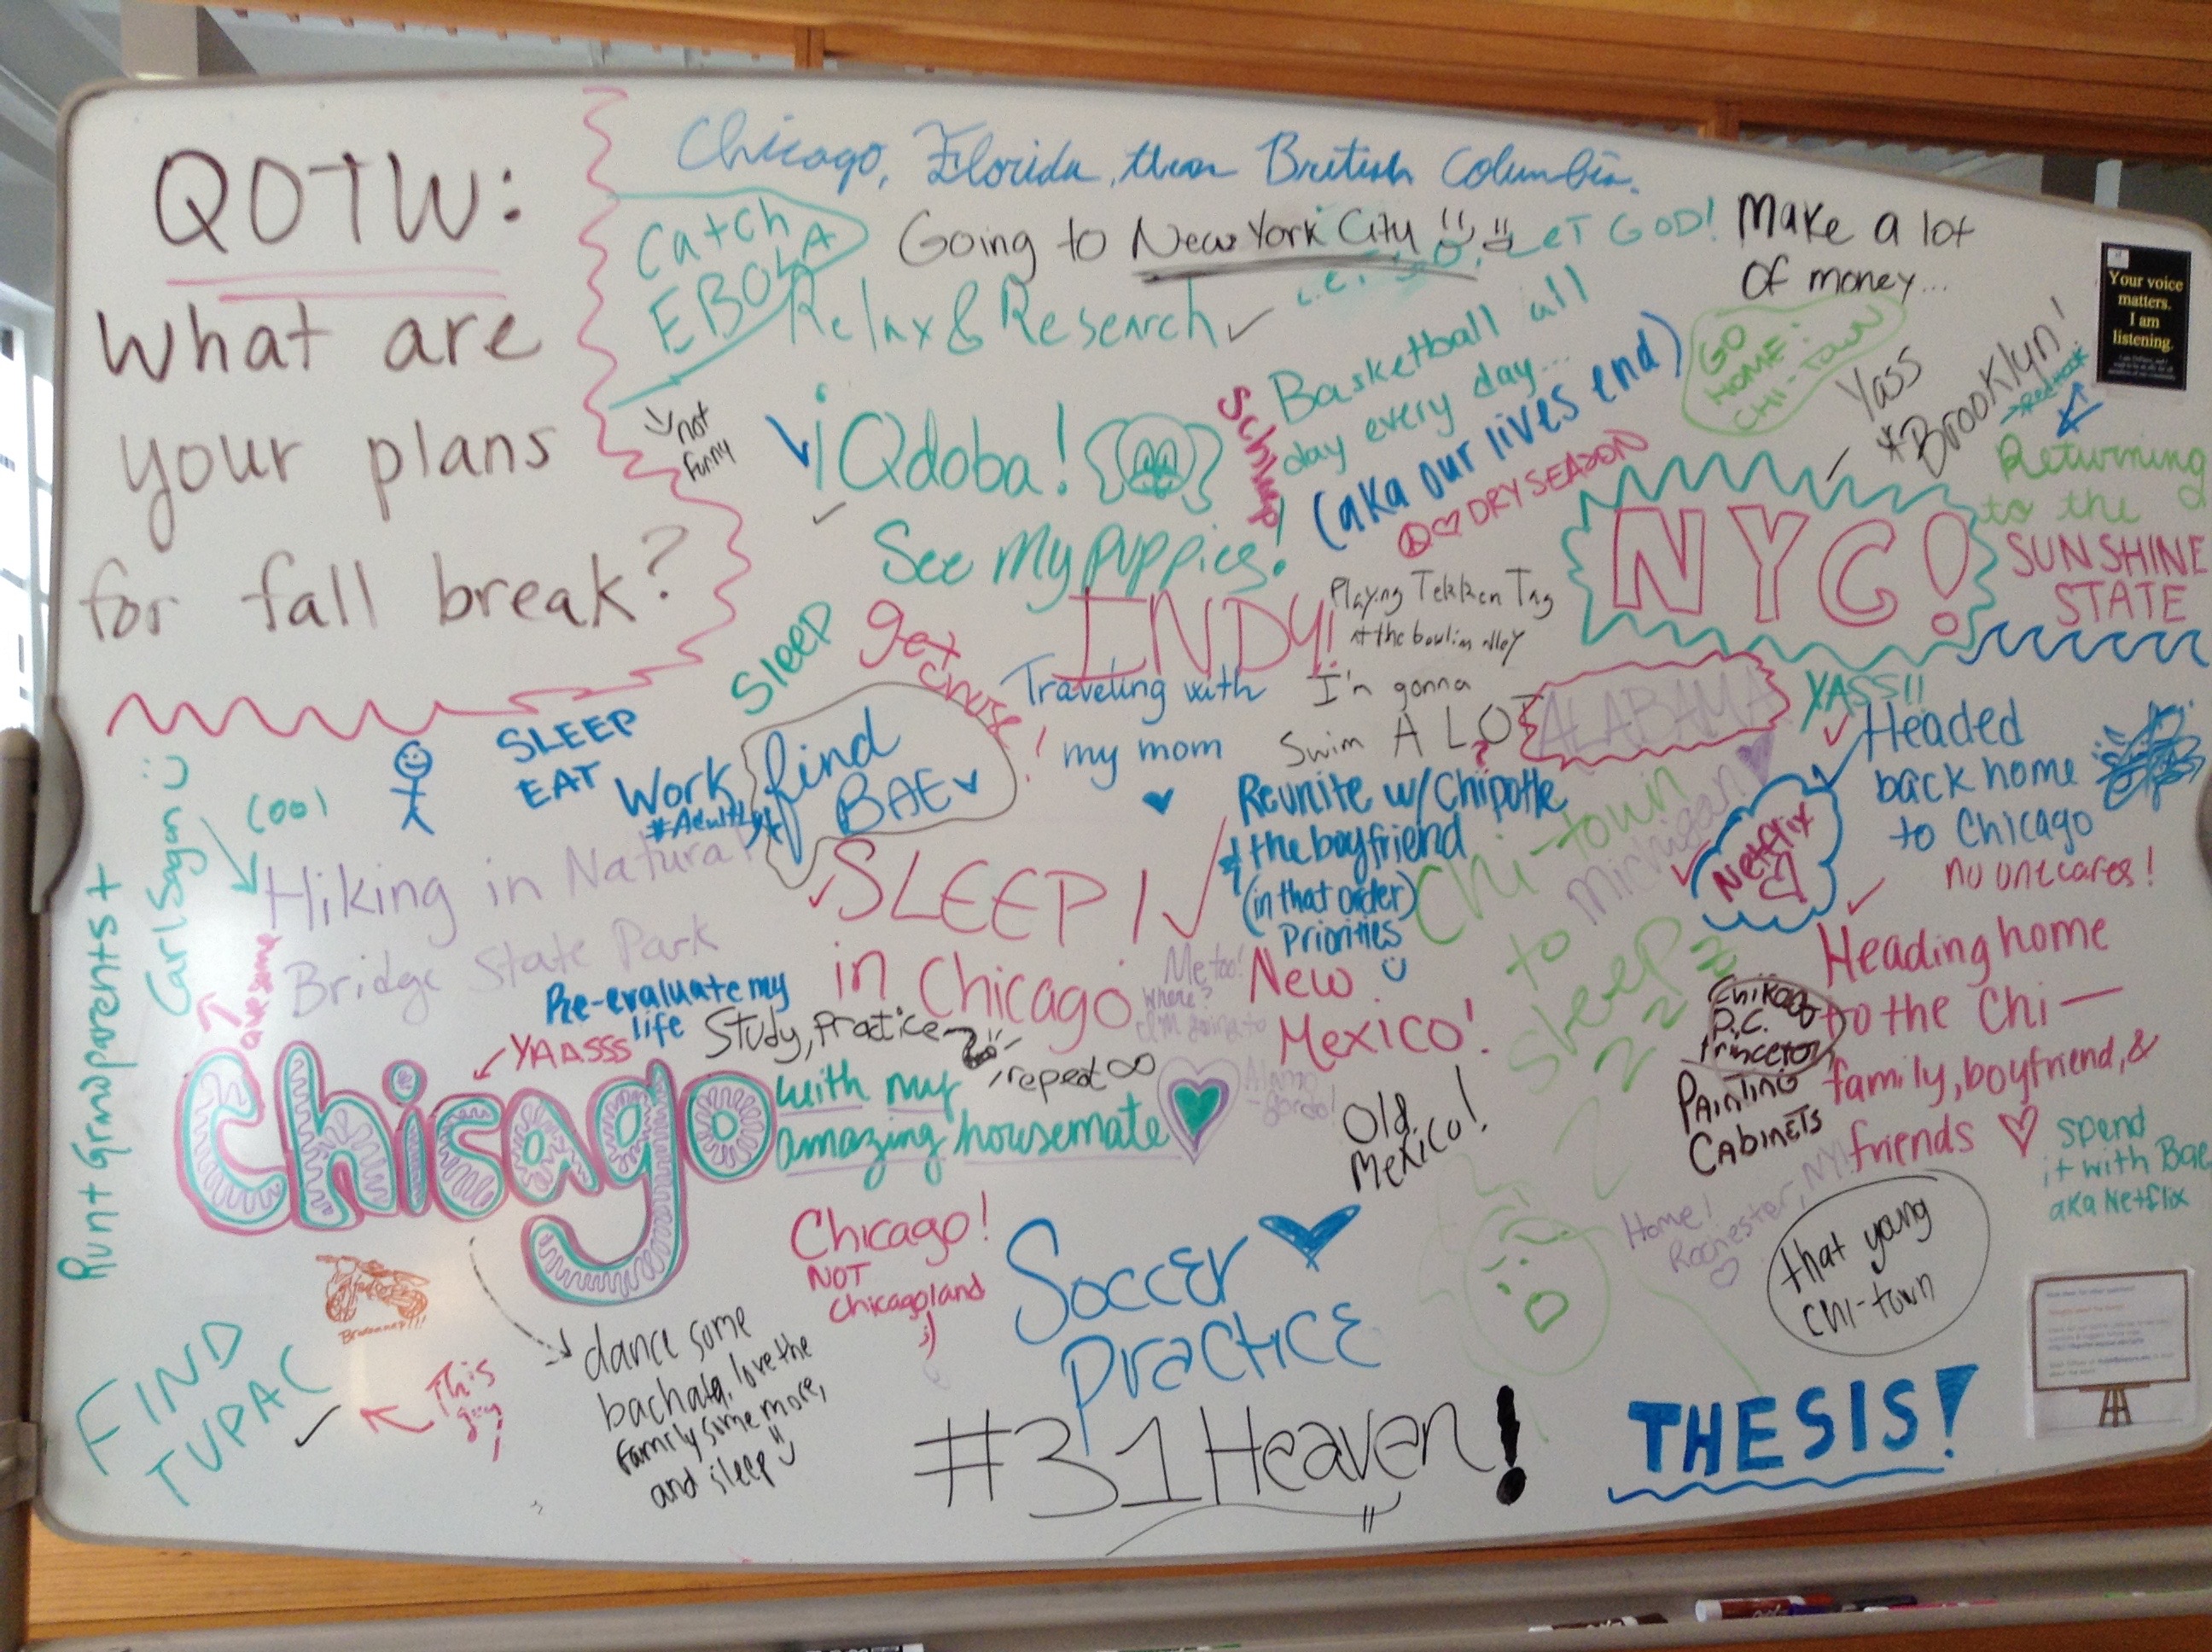 QOTW:
What are
your plans
for fall break?
Chicago, Florida, then British Columbia.
Catch
EBOLA
not
funny
Going to New York City
LET GOD!
Relax & Research
Make a lot
of money...
GO
HOME:
CHI-TOWN
Yass
*Brooklyn!
→Red Hook
Your voice
matters.
I am
listening.
Basketball all
day every day...
(aka our lives end)
DRY SEASON
¡Qdoba!
See my puppies!
Returning
to the
SUNSHINE
STATE
NYC!
INDY!
Playing Tekken Tag
at the bowlin alley
Sleep
get
Traveling with
my mom
I'm gonna
Swim A LOT
ALABAMA
YASS!!
Headed
back home
to Chicago
no one cares!
SLEEP
EAT
Work
find
BAE
Reunite w/Chipotle
& the boyfriend
(in that order)
Priorities
Chi-town
to
Sleep
Michigan
Netflix
Carl Sagan
Cool
Hiking in Natural
Bridge State Park
awesome
Runt Grandparents +
SLEEP!
in Chicago
Me too!
Where?
I'm going to
New
Mexico!
Alamo
gordo!
Old
Mexico!
Re-evaluate my
life
Study, Practice
repeat ∞
YAASSS
Chicago
with my
amazing housemate
Heading home
to the Chi—
family, boyfriend, &
friends
P.C.
Princeton
PAINTING
CABINETS
Home!
Rochester, NY!
spend
it with Bae
aka Netflix
that young
CHI-town
Chicago!
NOT
Chicagoland
;)
Soccer
Practice
FIND
TUPAC
This
guy!
dance some
bachata, love the
family some more,
and sleep
#31 Heaven!
THESIS!